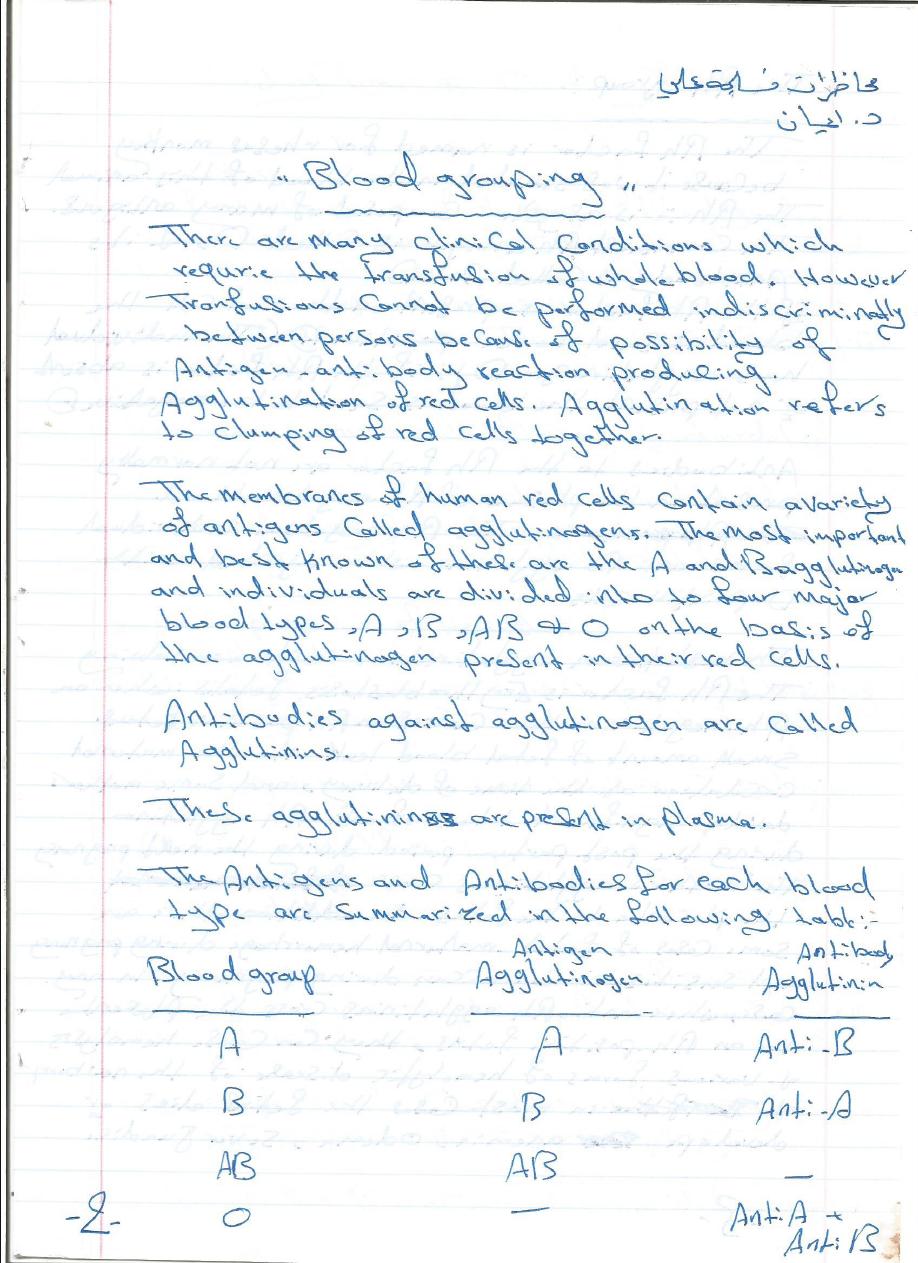 محاظرات فسلجة عملي
د. ايمان
" Blood grouping "
There are many clinical conditions which
requrie the transfusion of whole blood. However
Tranfusions Cannot be performed indiscriminatly
between persons because of possibility of
Antigen antibody reaction producing.
Agglutination of red cells. Agglutination refers
to clumping of red cells together.
The membranes of human red cells contain a variety
of antigens Called agglutinogens. The most important
and best known of these are the A and B agglutinogen
and individuals are divided into to four major
blood types, A, B, AB & O on the basis of
the agglutinogen present in their red cells.
Antibodies against agglutinogen are Called
Agglutinins.
These agglutinins are present in plasma.
The Antigens and Antibodies for each blood
type are Summarized in the following table:-
Antigen Antibody
Blood group Agglutinogen Agglutinin
A A Anti-B
B B Anti-A
AB AB —
O — Anti A +
-2- Anti B